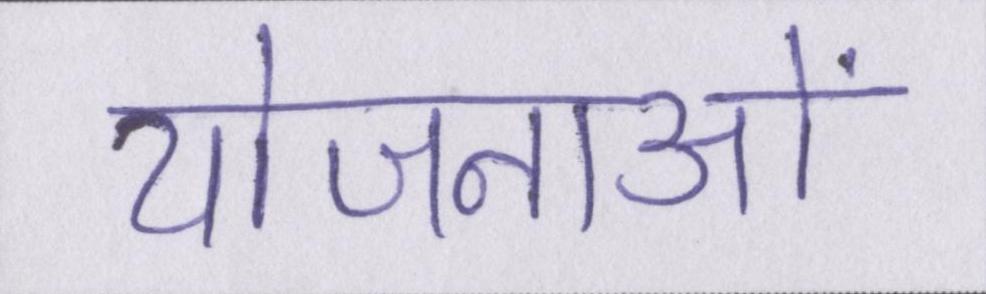 योजनाओं